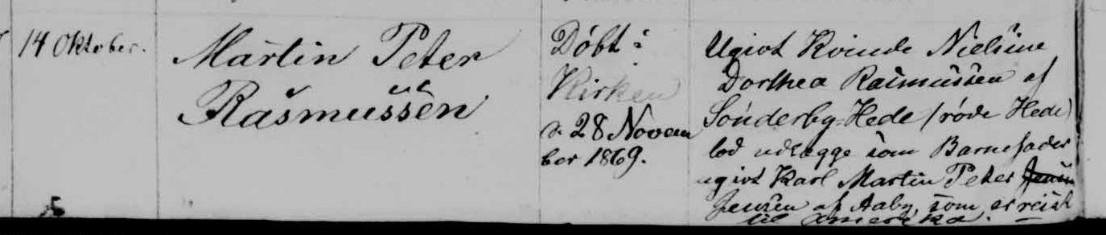 14 Oktober.
Martin Peter
Rasmussen
Døbt i
Kirken
d. 28 Novem
ber 1869.
Ugivt Kvinde Nielsine
Dorthea Rasmussen af
Sønderby-Hede (røde Hede)
lod udlægge som Barnefader
ugivt Karl Martin Peter Jensen
Jensen af Aaby, som er reist
til Amerika.